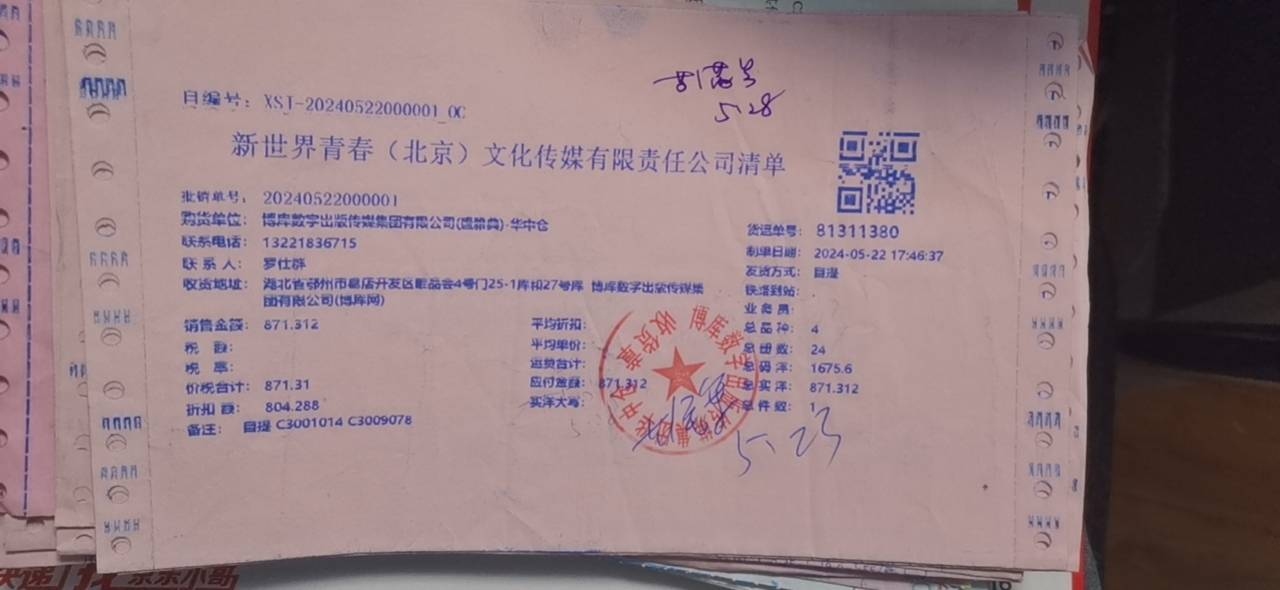 5.28
自编号: XSJ-20240522000001_0C
新世界青春（北京）文化传媒有限责任公司清单
批销单号: 20240522000001
购货单位: 博库数字出版传媒集团有限公司(盛雅典)-华中仓
货运单号: 81311380
联系电话: 13221836715
制单日期: 2024-05-22 17:46:37
联系人: 罗仕群
发货方式: 自提
收货地址: 湖北省鄂州市葛店开发区唯品会4号门25-1库和27号库 博库数字出版传媒集
团有限公司(博库网)
铁路到站:
业务员:
销售金额: 871.312
平均折扣:
总品种: 4
税额:
平均单价:
总册数: 24
税率:
运费合计:
总码洋: 1675.6
价税合计: 871.31
应付金额: 871.312
总实洋: 871.312
折扣额: 804.288
实洋大写:
总件数: 1
备注: 自提 C3001014 C3009078
博库数字出版传媒集团
华中仓
收货章
5.23
快递
京东小哥